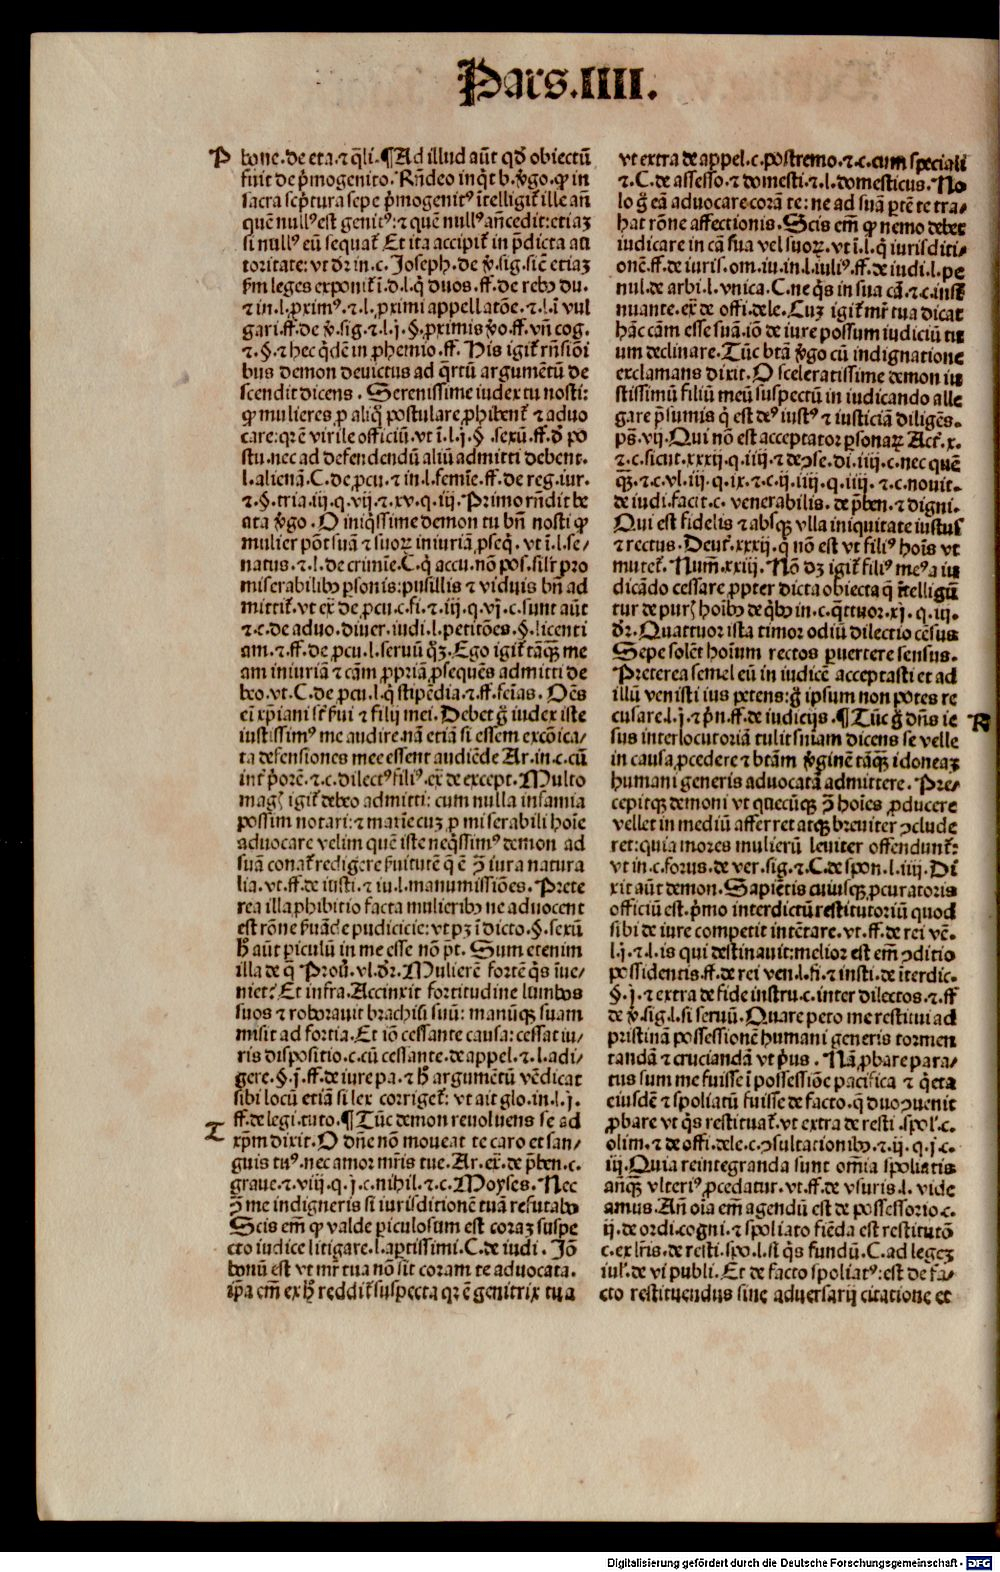 Pars.IIII.
P
bone.de eta.⁊ q̄li.¶Ad illud aūt qd̄ obiectū
fuit de p̄mogenito. Rn̄deo inq̄t b.v̓go.ꝙ in
sacra scp̄tura sepe p̄mogenitꝰ ītelligit̄ ille an̄
quē nullꝰ est genitꝰ:⁊ quē nullꝰ an̄cedit:etiaꝫ
si nullꝰ eū sequat̄ Et ita accipit̄ in p̄dicta au
toritate:vt dr̄ in.c. Joseph.de v̓.sig.sic̄ etiaꝫ
ẜm leges exponit̄ ī.d.l.q̄ duos.ff.de rebꝰ du.
⁊ in.l.ꝓximꝰ.⁊.l.ꝓximi appellatōe.⁊.l.ī vul
gari.ff.de v̓.sig.⁊.l.j.§.ꝓximis v̓o.ff.vn̄ cog.
⁊.§.⁊ hec q̄dē in ꝓhemio.ff. His igit̄ rn̄siōi
bus demon deuictus ad q̄rtū argumētū de
scendit dicens. Serenissime iudex tu nosti:
ꝙ mulieres ꝓ aliq̄ postulare ꝓhibent̄ ⁊ aduo
care:qr̄ ē virile officiū.vt ī.l.j.§.sexū.ff.d̓ po
stu.nec ad defendendū aliū admitti debent.
l.alienā.C.de ꝓcu.⁊ in.l.femīe.ff.de reg.iur.
⁊.§.tria.iij.q.vij.⁊.xv.q.iij. Primo rn̄dit be
ata v̓go. O iniq̄ssime demon tu bn̄ nosti ꝙ
mulier pōt suā ⁊ suoꝝ iniuriā ꝓseq̄.vt ī.l.se⸗
natus.⁊.l.de crimīe.C.q̄ accu.nō pos.silr̄ pro
miserabilibꝰ ꝑsonis:pusillis ⁊ viduis bn̄ ad
mittit̄.vt ex̄ de ꝓcu.c.fi.⁊.iij.q.vij.c.sunt aūt
⁊.c.de aduo.diuer.iudi.l.petitōes.§.licenti
am.⁊.ff.de ꝓcu.l.seruū q̄ꝫ.Ego igit̄ tāꝗꝫ me
am iniuriā ⁊ cām ꝓpriā ꝓsequēs admitti de
beo.vt.C.de ꝓcu.l.q̄ stipēdia.⁊.ff.feīas. Oēs
ei xp̄iani sūt ẜui ⁊ filij mei.Debet g̊ iudex iste
iustissimꝰ me audire.nā etiā si essem excōica⸗
ta defensiones mee essent audiēde Ar.in.c.cū
int̄ p̄orē.⁊.c.dilectꝰ filiꝰ.ex̄ de except. Multo
magꝭ igit̄ debeo admitti: cum nulla infamia
possim notari:⁊ maxīe cuꝫ ꝓ miserabili hoīe
aduocare velim quē iste neq̄ssimꝰ demon ad
suā conat̄ redigere ẜuitutē q̄ ē ꝯ̄ iura natura
lia.vt.ff.de iusti.⁊ iu.l.manumissiōes. Prete
rea illa ꝓhibitio facta mulieribꝰ ne aduocent
est rōne ẜuāde pudicicie:vt pꝫ ī dicto.§.sexū
h̄ aūt ꝑiculū in me esse nō p̄t. Sum etenim
illa de q̄ Prou̓.vl.dr̄.Mulierē fortē q̄s īue⸗
niet? Et infra.Accinxit fortitudine lumbos
suos ⁊ roborauit brachiū suū: manūꝗꝫ suam
misit ad fortia.Et iō cessante causa:cessat iu⸗
ris dispositio.c.cū cessante.de appel.⁊.l.adi⸗
gere.§.j.ff.de iure pa.⁊ h̄ argumētū vēdicat
sibi locū etiā si lex corriget̄: vt ait glo.in.l.j.
ff.de legi.tuto.¶Tūc demon reuoluens se ad
T
xp̄m dixit. O dn̄e nō moueat te caro et san⸗
guis tuꝰ.nec amor mr̄is tue. Ar.ex̄.de p̄ben.c.
graue.⁊.viij.q.j.c.nihil.⁊.c.Moyses. Nec
ꝯ̄ me indigneris si iurisditionē tuā refutabo
Scis em̄ ꝙ valde ꝑiculosum est coraꝫ suspe
cto iudice litigare.l.aꝑtissimi.C.de iudi. Jō
bonū est vt mr̄ tua nō sit coram te aduocata.
ip̄a em̄ ex h̄ reddit̄ suspecta qr̄ ē genitrix tua
vt extra de appel.c.postremo.⁊.c.cum speciali
⁊.C.de assesso.⁊ domesti.⁊.l.domesticus. No
lo g̊ eā aduocare corā te: ne ad suā ꝑtē te tra⸗
hat rōne affectionis. Scis em̄ ꝙ nemo debet
iudicare in cā sua vel suoꝝ.vt ī.l.q̄ iurisditi⸗
onē.ff.de iuris.om.iu.in.l.iuliꝰ.ff.de iudi.l.pe
nul.de arbi.l.vnica.C.ne q̄s in sua cā.⁊.c.insi
nuante.ex̄ de offi.dele. Cuꝫ igit̄ mr̄ tua dicat
hāc cām esse suā.iō de iure possum iudiciū tu
um declinare. Tūc btā v̓go cū indignatione
exclamans dixit. O sceleratissime demon iu
stissimū filiū meū suspectū in iudicando alle
gare p̄sumis q̄ est deꝰ iustꝰ ⁊ iusticiā diligēs.
ps̄.vij. Qui nō est acceptator ꝑsonaꝝ Act̄.x.
⁊.c.sicut.xxxij.q.iiij.⁊ de ꝯse.di.iiij.c.nec quē
ꝗꝫ.⁊.c.vl.iij.q.ix.⁊.c.ij.iiij.q.iiij.⁊.c.nouit.
de iudi.facit.c. venerabilis.de p̄ben.⁊ digni.
Qui est fidelis ⁊ absꝗꝫ vlla iniquitate iustus
⁊ rectus. Deut̄.xxxij.q̄ nō est vt filiꝰ hoīs vt
mutet̄. Num̄.xxiij. Nō dꝫ igit̄ filiꝰ meꝰ a iu
dicādo cessare ꝓpter dicta obiecta q̄ ītelligū
tur de purꝭ hoībꝰ de q̄bꝰ in.c.q̄ttuor.xj.q.iij.
dr̄.Quattuor ista timor odiū dilectio cēsus
Sepe solēt hoīum rectos ꝑuertere sensus.
Preterea semel eū in iudicē acceptasti et ad
illū venisti ius petens:g̊ ipsum non potes re
cusare.l.ij.⁊ p̄n.ff.de iudicijs.¶Tūc g̊ dn̄s ie
R
sus interlocutoriā tulit sniam dicens se velle
in causa ꝓcedere ⁊ btam v̓ginē tāꝗꝫ idoneaꝫ
humani generis aduocatā admittere. Pre⸗
cepitꝗꝫ demoni vt quecūꝗꝫ ꝯ̄ hoīes ꝓducere
vellet in mediū afferret atꝗꝫ breuiter ꝯclude
ret:quia mores mulierū leuiter offendunt̄:
vt in.c.forus.de ver.sig.⁊.C.de spon.l.iiij. Di
xit aūt demon. Sapiētis cuiusꝗꝫ ꝓcuratoris
officiū est.p̄mo interdictū restitutoriū quod
sibi de iure competit intētare.vt.ff.de rei vē.
l.ij.⁊.l.is qui destinauit:melior est em̄ ꝯditio
possidentis.ff.de rei ven.l.fi.⁊ insti.de īterdic.
§.j.⁊ extra de fide instru.c.inter dilectos.⁊.ff
de v̓.sig.l.si seruū. Quare peto me restitui ad
pristinā possessionē humani generis tormen
tandā ⁊ cruciandā vt p̄us. Nā ꝓbare para⸗
tus sum me fuisse ī possessiōe pacifica ⁊ q̄eta
eiusdē ⁊ spoliatū fuisse de facto.q̄ duo ꝯuenit
ꝓbare vt q̄s restituat̄.vt extra de resti.spol̄.c.
olim.⁊ de offi.dele.c.ꝯsultationibꝰ.⁊.ij.q.j.c.
iij. Quia reintegranda sunt om̄ia spoliatis
an̄ꝗꝫ vlteriꝰ ꝓcedatur.vt.ff.de vsuris.l. vide
amus. An̄ oīa em̄ agendū est de possessorio.c.
ij.de ordi.cogni.⁊ spoliato fiēda est restitutō
c.ex lr̄is.de resti.spo.l.si q̄s fundū.C.ad legeꝫ
iul̄.de vi publi. Et de facto spoliatꝰ:est de fa⸗
cto restituendus sine aduersarij citatione et
Digitalisierung gefördert durch die Deutsche Forschungsgemeinschaft - DFG